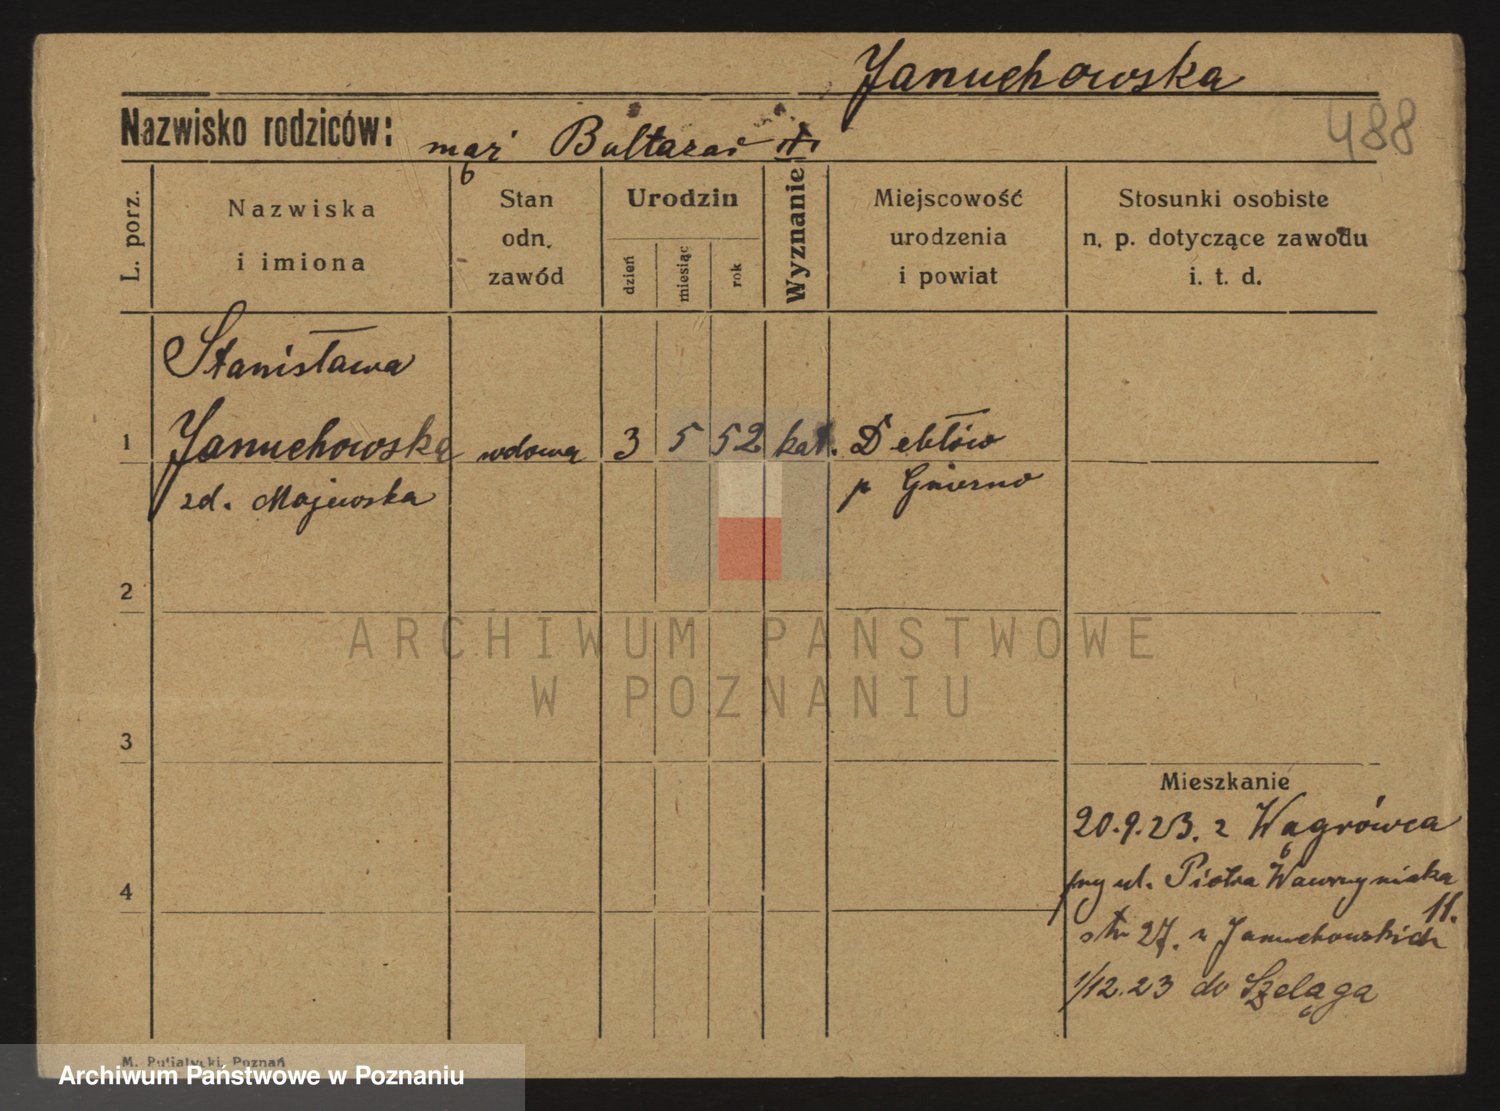 Januchowska
488
Nazwisko rodziców: mąż Baltazar
L. porz.
Nazwiska
i imiona
Stan
odn.
zawód
Urodzin
dzień
miesiąc
rok
Wyznanie
Miejscowość
urodzenia
i powiat
Stosunki osobiste
n. p. dotyczące zawodu
i. t. d.
Stanisława
1 Januchowska wdowa 3 5 52 kat. Debłów
zd. Majewska p Gniezno
2
ARCHIWUM PAŃSTWOWE
W POZNANIU
3
Mieszkanie
20.9.23. z Wągrówca
4
przy ul. Piotra Wawrzyniaka
11.
str 27. u Januchowskich
1/12.23 do Szeląga
M. Putiatycki, Poznań
Archiwum Państwowe w Poznaniu